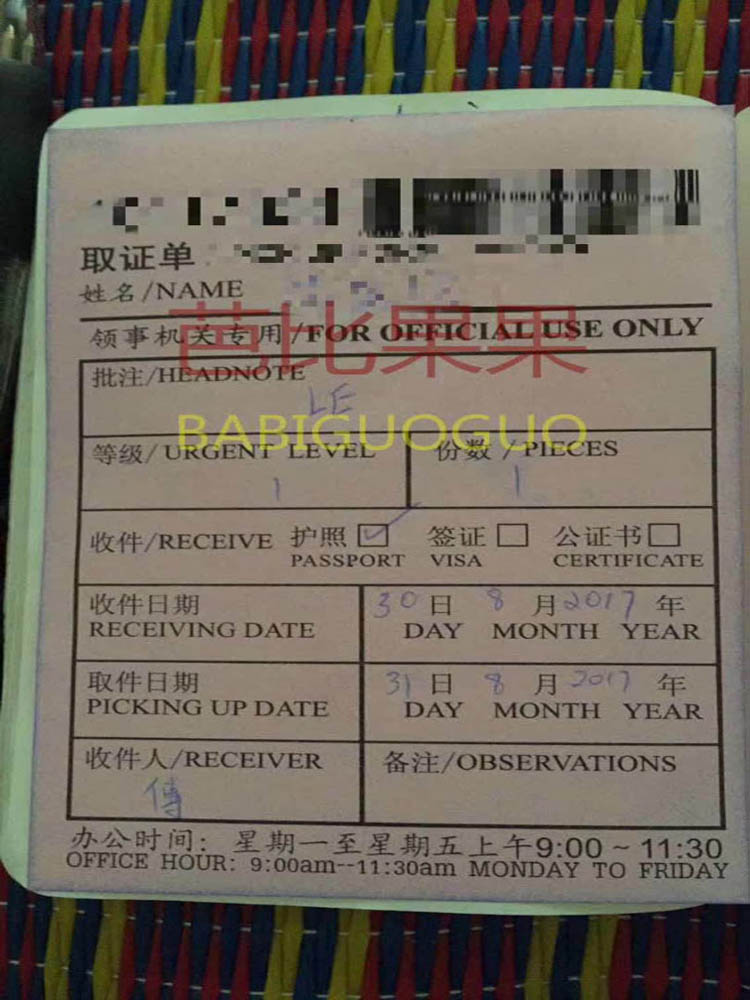 取证单
姓名/NAME
领事机关专用/FOR OFFICIAL USE ONLY
芭比果果
批注/HEADNOTE
LE
BABIGUOGUO
等级/URGENT LEVEL 份数/PIECES
1 1
收件/RECEIVE 护照 签证 公证书
PASSPORT VISA CERTIFICATE
收件日期 30日 8月2017年
RECEIVING DATE DAY MONTH YEAR
取件日期 31日 8月2017年
PICKING UP DATE DAY MONTH YEAR
收件人/RECEIVER 备注/OBSERVATIONS
傅
办公时间：星期一至星期五上午9:00~11:30
OFFICE HOUR: 9:00am--11:30am MONDAY TO FRIDAY